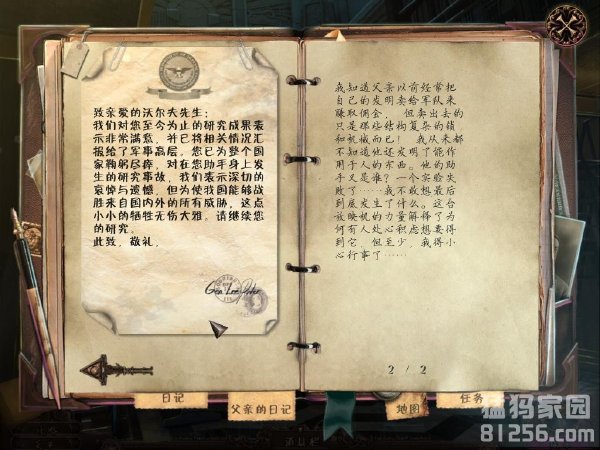 致亲爱的沃尔夫先生：
我们对您至今为止的研究成果表
示非常满意，并已将相关情况汇
报给了军事高层。您已为整个国
家鞠躬尽瘁，对在您助手身上发
生的研究事故，我们表示深切的
哀悼与遗憾，但为使我国能够战
胜来自国内外的所有威胁，这点
小小的牺牲无伤大雅。请继续您
的研究。
此致，敬礼。
我知道父亲以前经常把
自己的发明卖给军队来
赚取佣金，但卖出去的
只是那些结构复杂的锁
和机械而已！我从来都
不知道他还发明了能作
用于人的东西。他的助
手又是谁？一个实验失
败了……我不敢想最后
到底发生了什么。这台
放映机的力量解释了为
何有人处心积虑想要得
到它，但至少，我得小
心行事了……
2 / 2
日记
父亲的日记
地图
任务
猛犸家园
81256.com